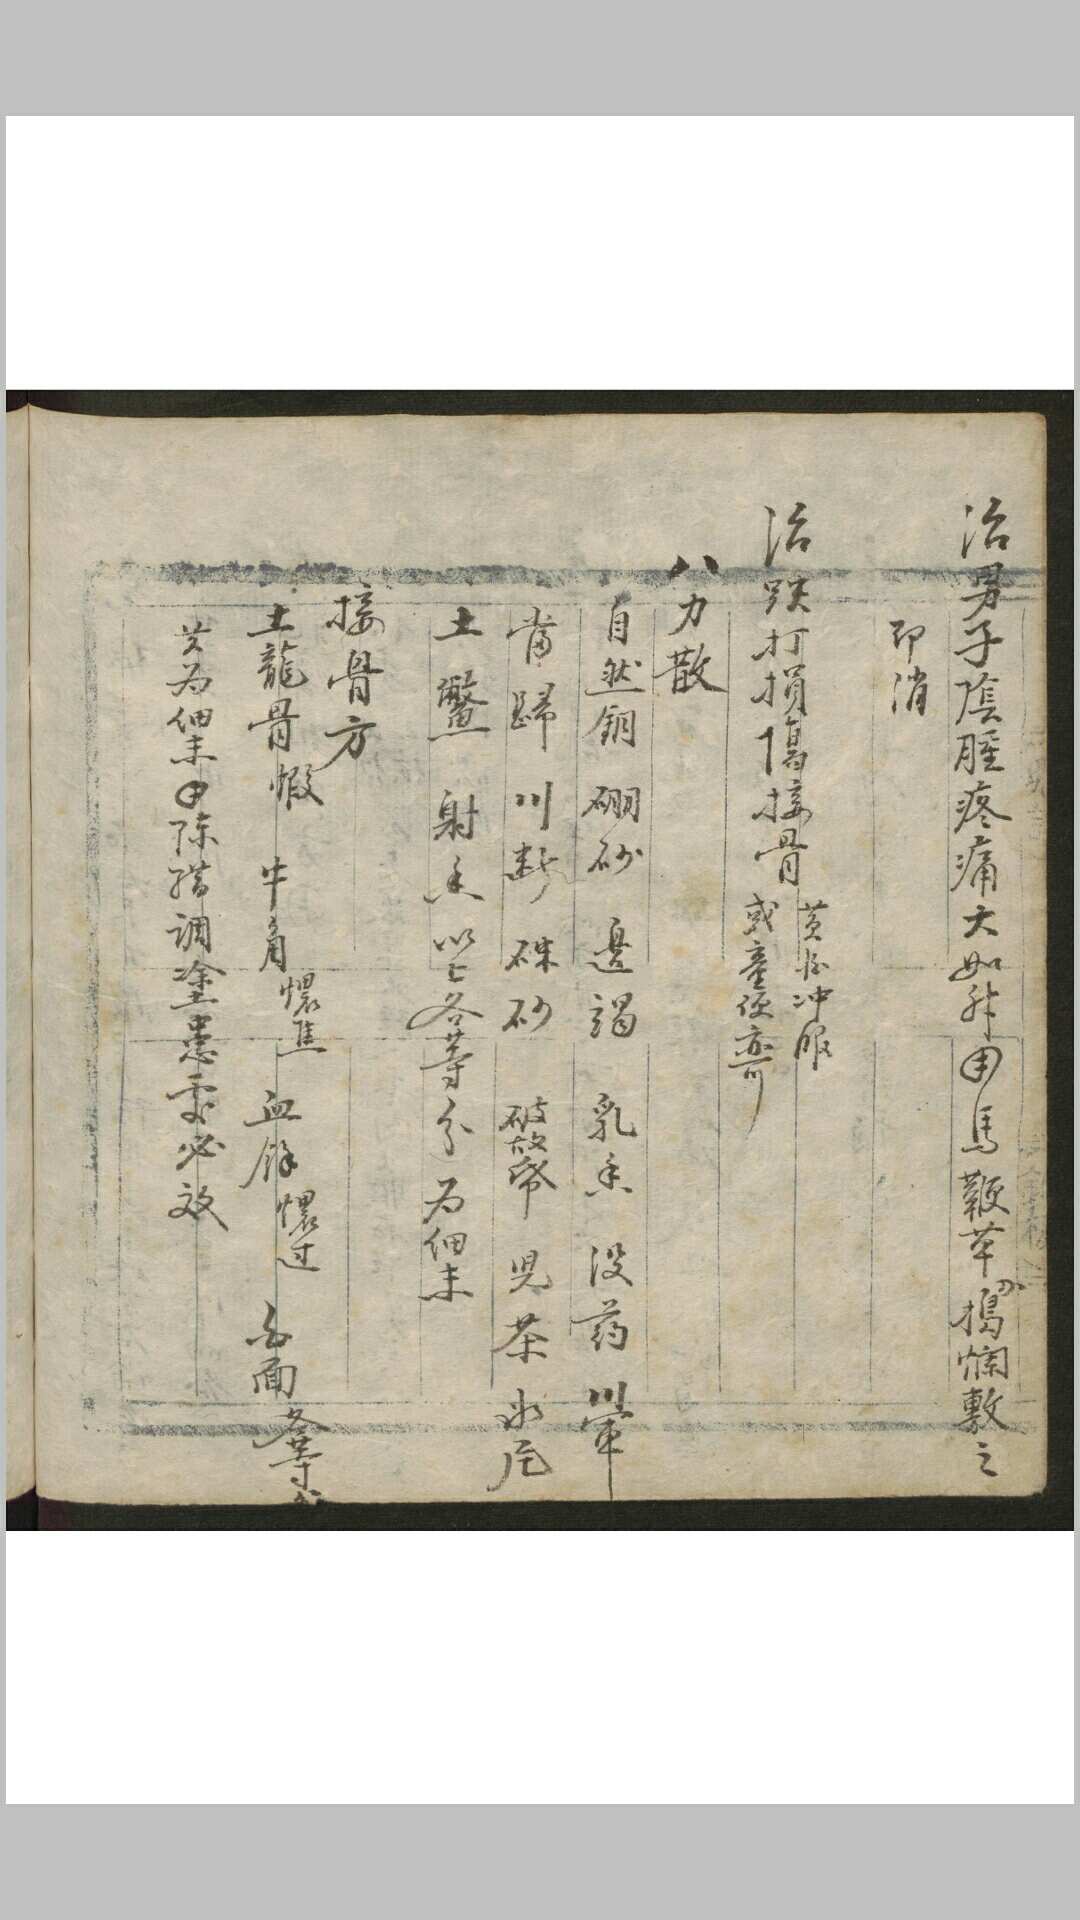 治男子陰腫疼痛大如升用馬鞭草搗爛敷之
即消
治跌打損傷接骨 黃酒冲服
或童便亦可
八力散
自然銅 硼砂 邊竭 乳香 没药 川軍
當歸 川断 硃砂 破故紙 児茶 水尼
土鱉 射香 以上各等分 为細末
接骨方
土龍骨煅 牛角 𤊶焦 血餘 过 白面 各等
共为細末 用陈醋調塗患處必效